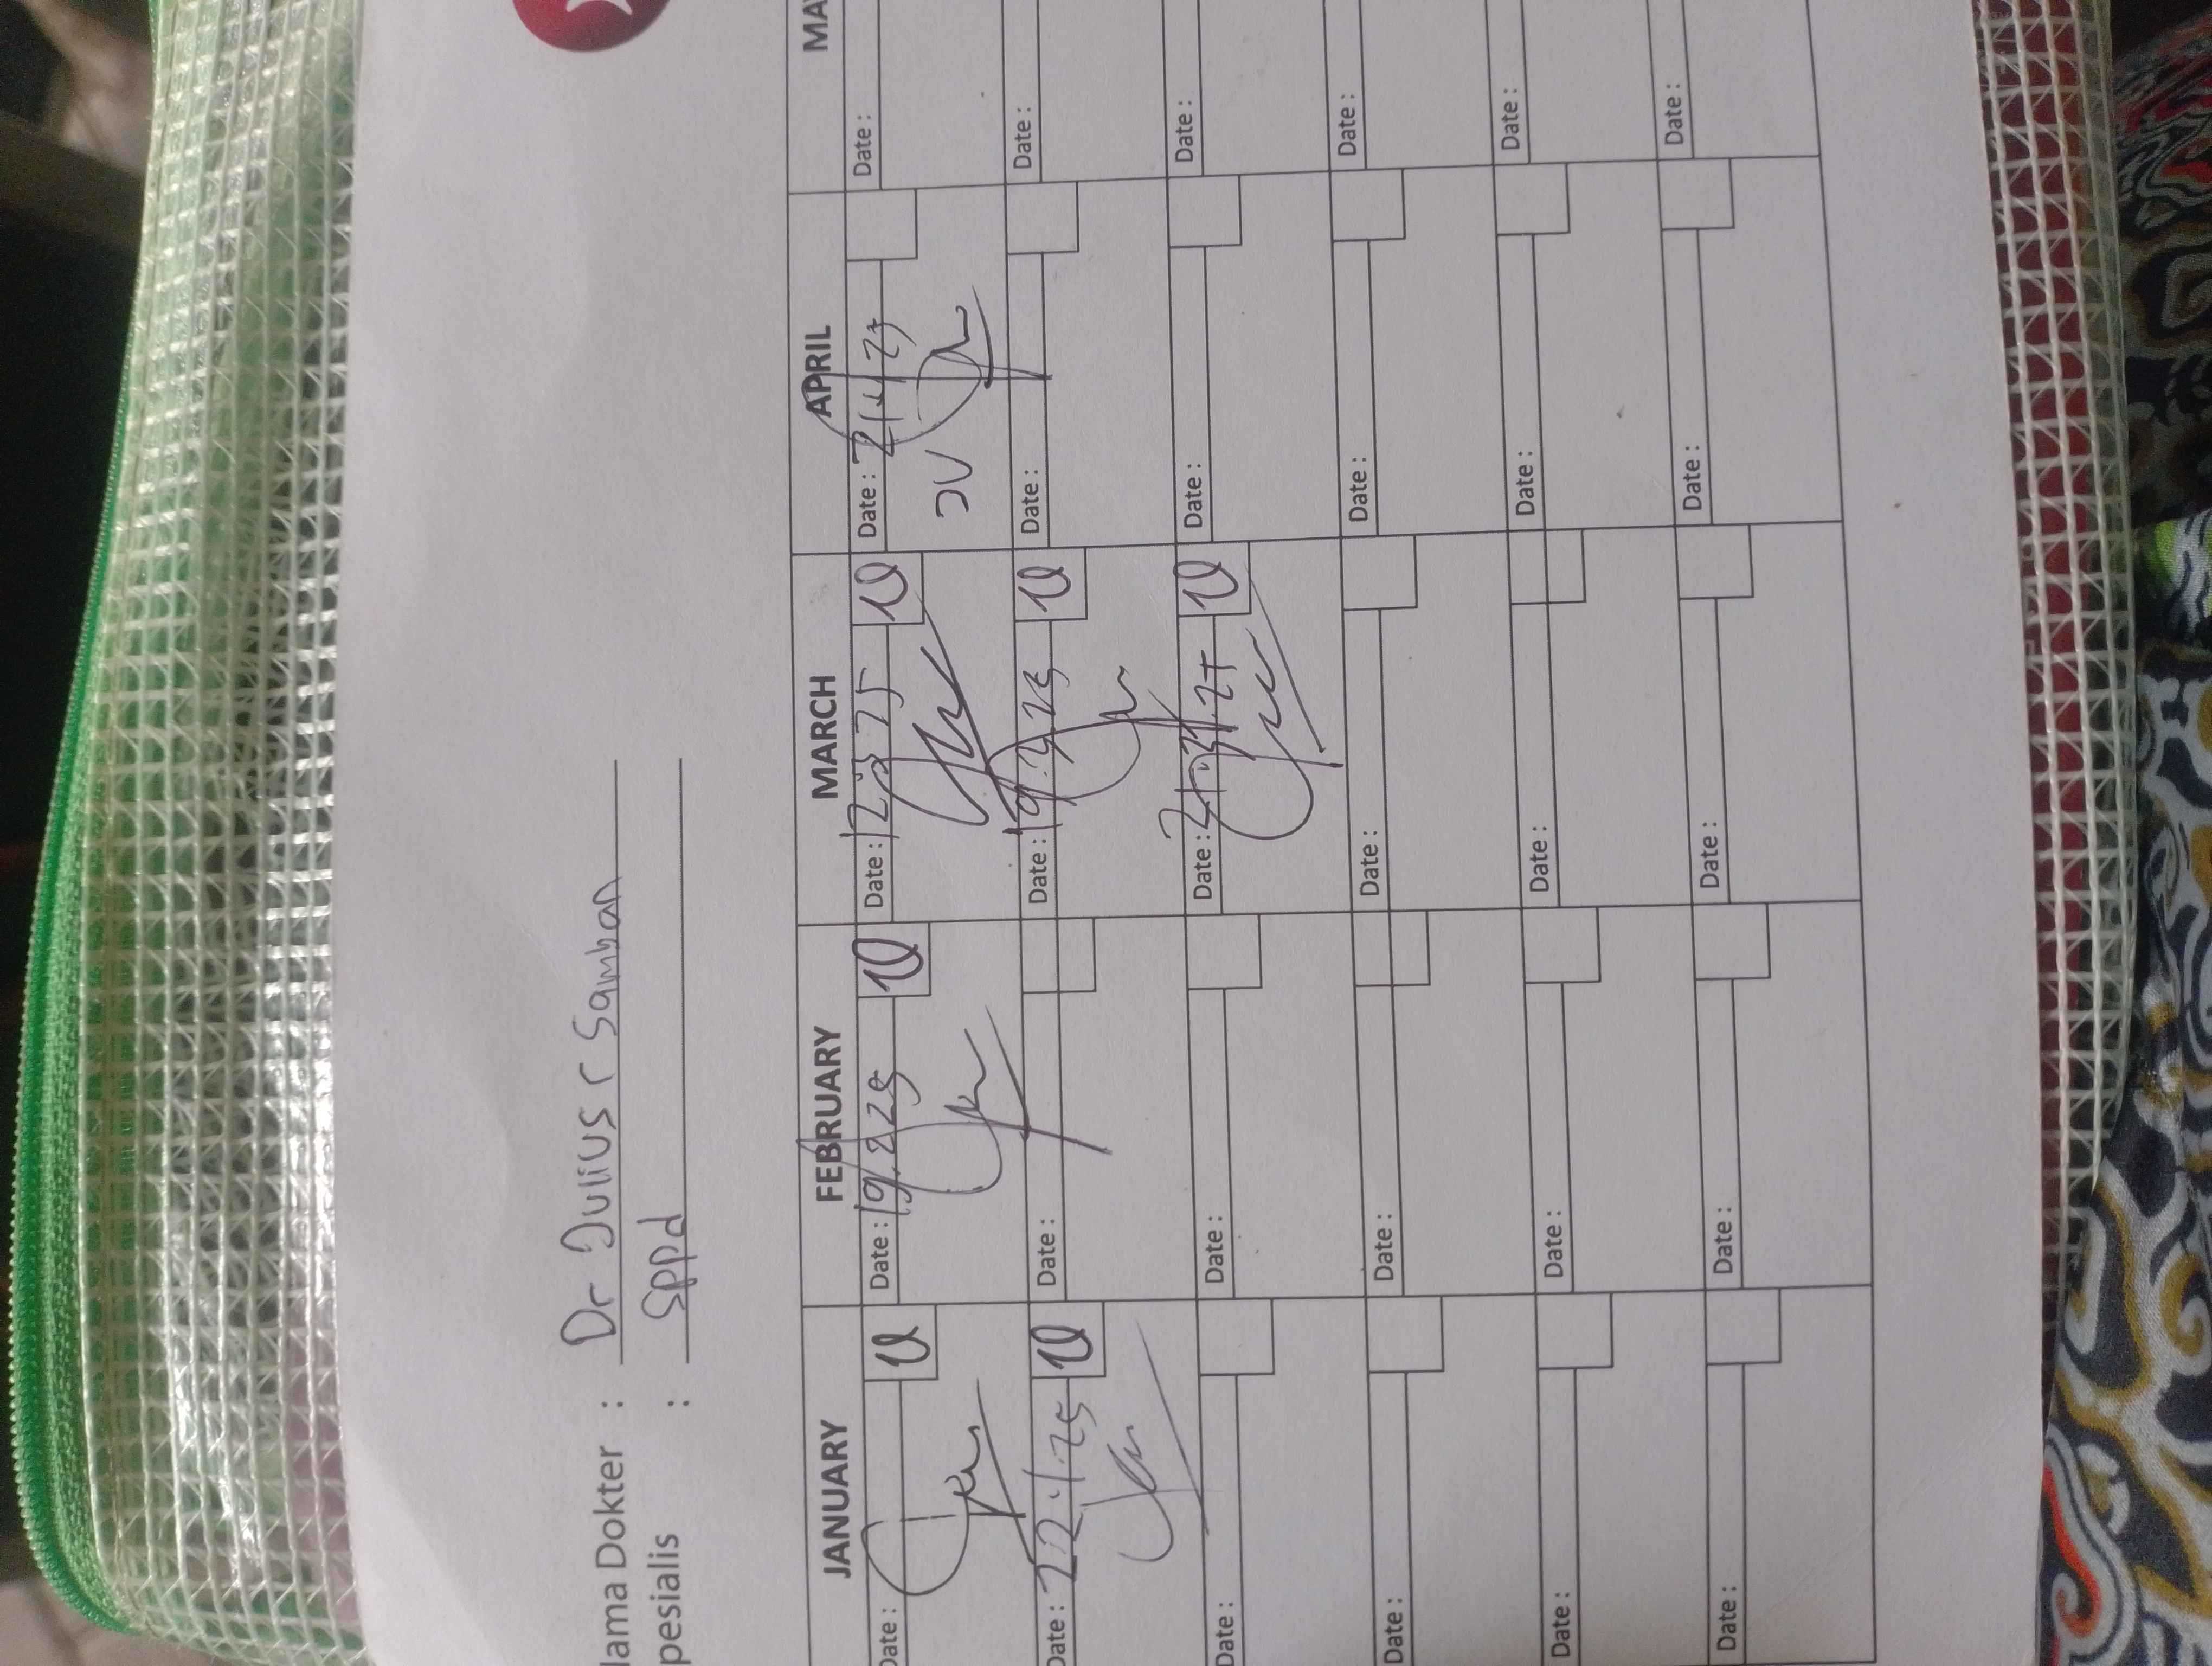 Nama Dokter : Dr Julius r Samban
Spesialis : Sppd
JANUARY FEBRUARY MARCH APRIL MA
Date : Date : 19.2 25 Date : 12.3 25 Date : 2/4/25 Date :
JV
Date : 22.1.25 Date : Date : 19.3.25 Date : Date :
Date : Date : Date : Date : Date :
Date : Date : Date : Date : Date :
Date : Date : Date : Date : Date :
Date : Date : Date : Date : Date :